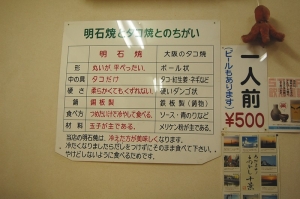 明石焼とタコ焼とのちがい
明石焼 大阪のタコ焼
形 丸いが、平べったい。 ボール状
中の具 タコだけ タコ・紅生姜・ネギなど
硬さ 柔らかくてもくずれない。 硬いダンゴ状
鍋 銅板製 鉄板製(鋳物)
食べ方 つめたいだしで冷やして食べる。 ソース・青のりなど
材料 玉子が主である。 メリケン粉が主である。
当店の明石焼は、冷えた方が美味しくなります。
冷たくなりましたらだしをつけずにそのまま食べて下さい。
やけどしないように食べるためです。
一人前
¥500
(ビールもあります)